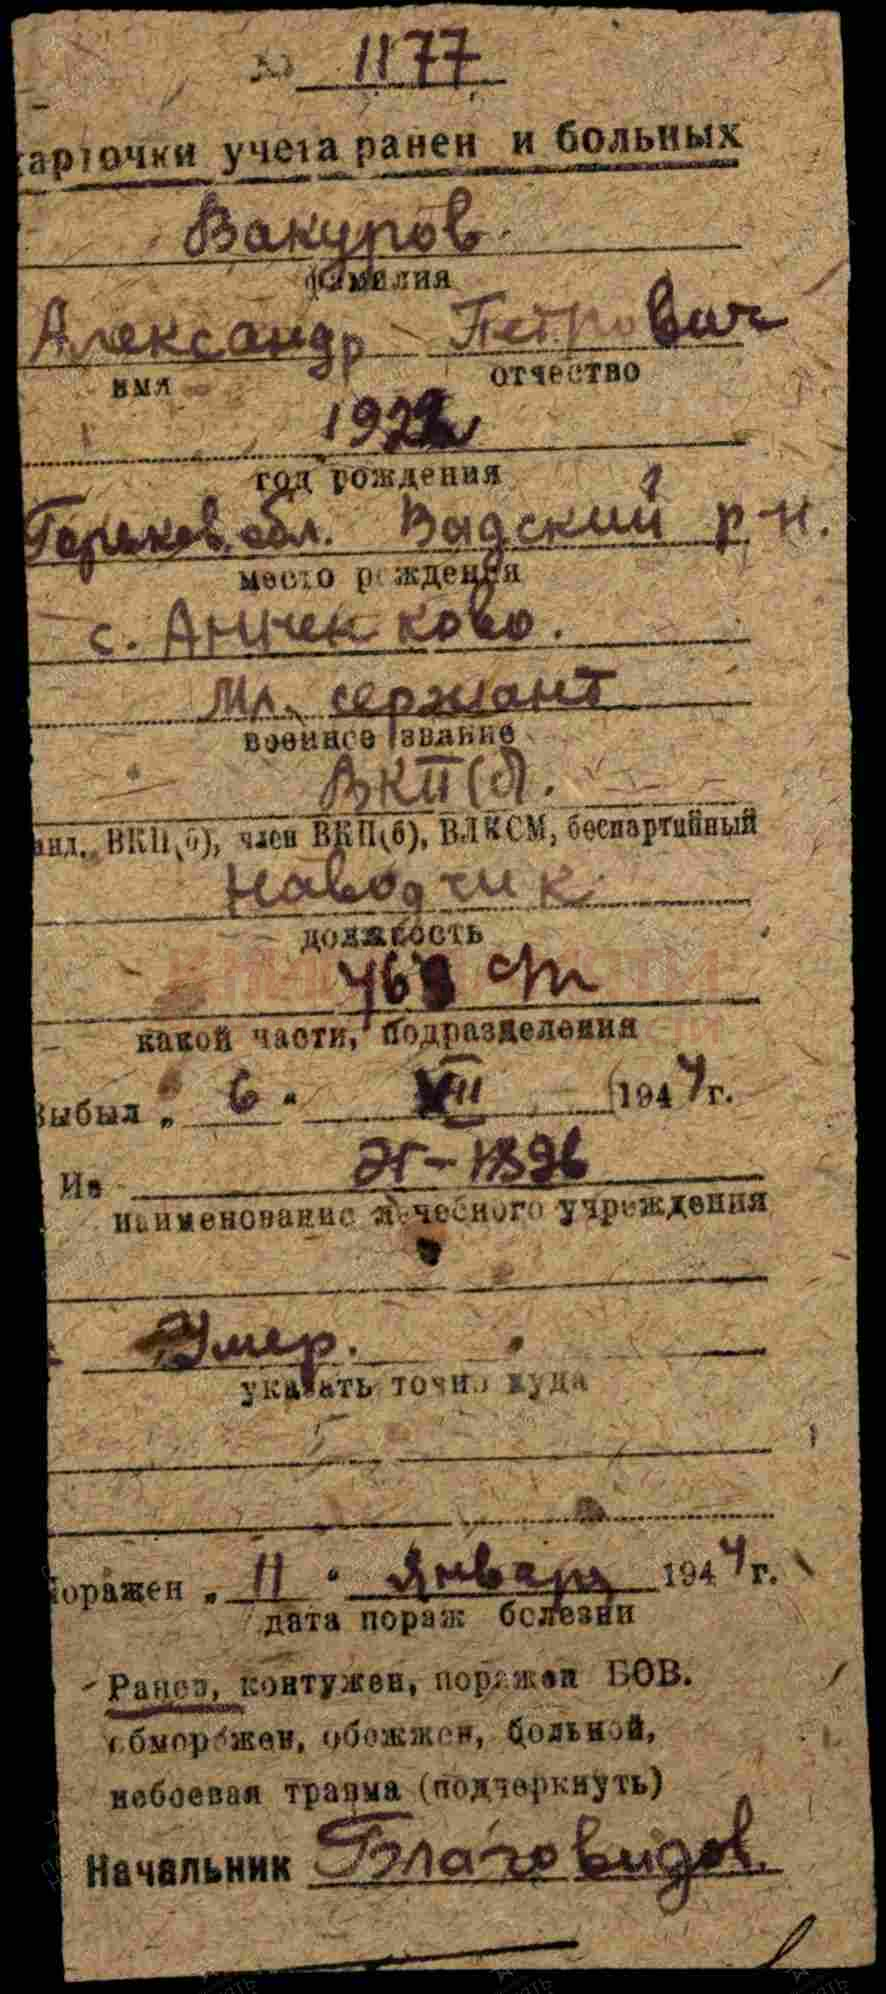 № 1177
карточки учета ранен и больных
Вакуров
фамилия
Александр Петрович
имя отчество
год рождения
Горьков. обл. Вадский р-н.
место рождения
с. Анненково.
Мл. сержант
военное звание
ВКП(б).
анд. ВКП(б), член ВКП(б), ВЛКСМ, беспартийный
Наводчик
должность
какой части, подразделения
Выбыл „ 6 " VII 1944 г.
Из ЭГ-
наименование лечебного учреждения
Умер.
указать точно куда
поражен „ 11 " января 1944 г.
дата пораж болезни
Ранен, контужен, поражен БОВ.
обморожен, обожжен, больной,
небоевая травма (подчеркнуть)
Начальник Благовидов.